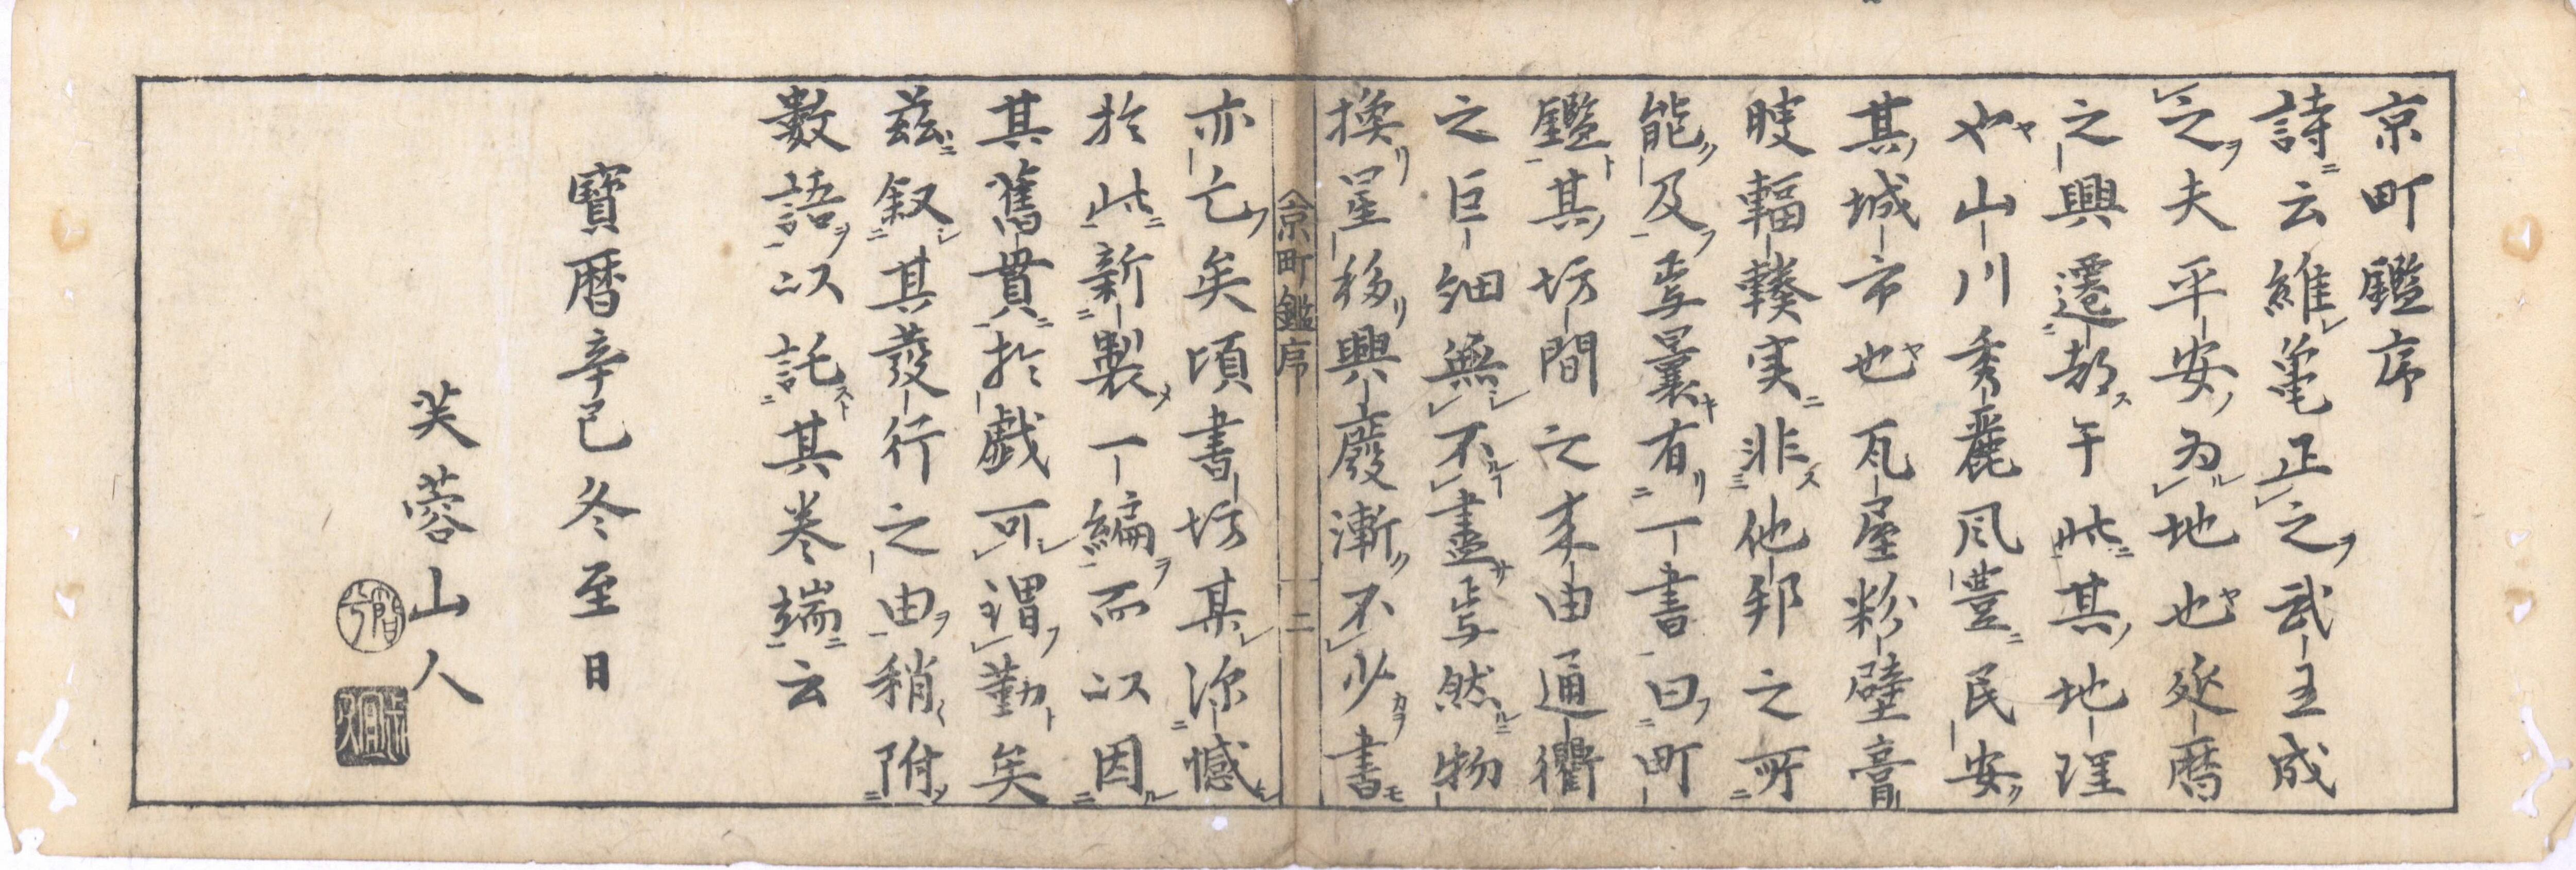 京町鑑序
詩云維亀正之武王成
之夫平安為地也延暦
之興遷都于此其地理
也山川秀麗風豊民安
其城市也瓦屋粉壁膏
腴輻輳実非他邦之所
能及焉曩有一書曰町
鑑其坊間之来由通衢
之巨細無不盡焉然物
換星移興廢漸不少書
京町鑑序 二
亦亡矣頃書坊某深憾
於此新製一編而以因
其舊貫於戯可謂勤矣
茲叙其發行之由稍附
數語以託其巻端云
寶暦辛巳冬至日
芙蓉山人